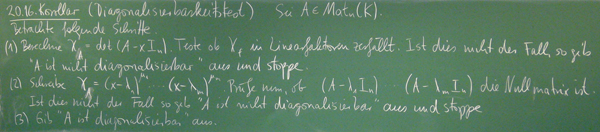 20.16. Korollar (Diagonalisierbarkeitstest) Sei A ∈ Mat_n(K).
Betrachte folgende Schritte.
(1) Berechne χ_A = det (A - x I_n). Teste ob χ_f in Linearfaktoren zerfällt. Ist dies nicht der Fall, so gib
"A ist nicht diagonalisierbar" aus und stoppe.
(2) Schreibe χ_A = (x-λ_1)^{μ_1} ... (x-λ_m)^{μ_m}. Prüfe nun, ob (A-λ_1 I_n) ... (A-λ_m I_n) die Nullmatrix ist.
Ist dies nicht der Fall so gib "A ist nicht diagonalisierbar" aus und stoppe
(3) Gib "A ist diagonalisierbar" aus.